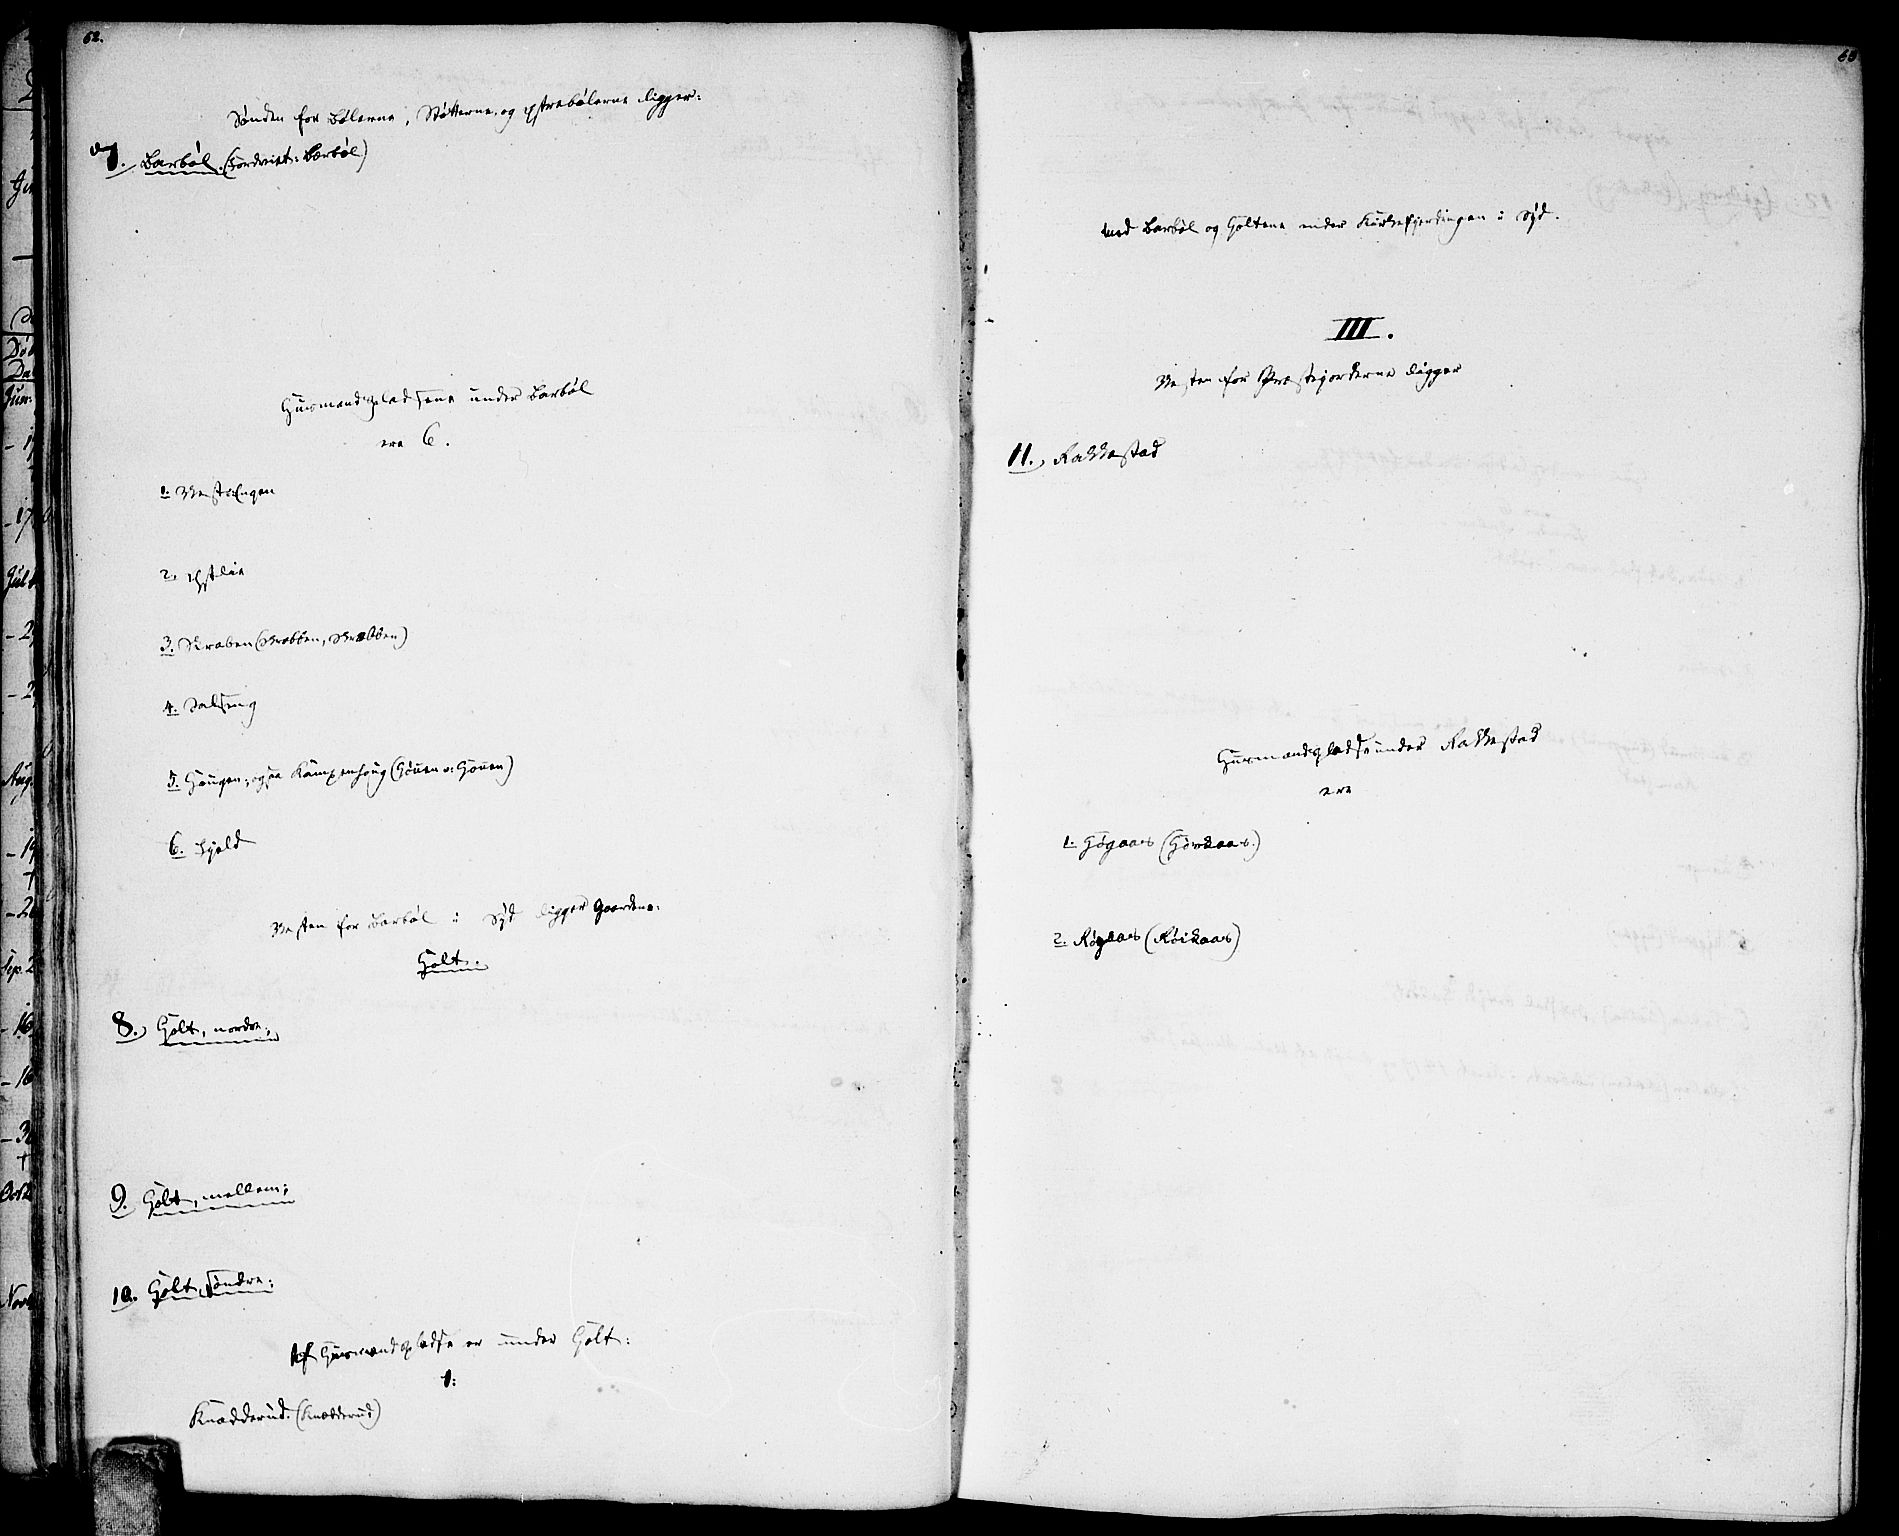 62.
Sønden for Bølerne, Støtterne, og Østrebølerne ligger:
7. Barbøl. (Fordreiet: Bærbøl)
Huusmandspladsene under Barbøl
ere 6.
1. VestreEngen
2. Østlie
3. Skraben (Skrabben, Skræbben)
4. Dalseng
5. Hougen; ogsaa Kampenhoug (Houen o: Houen)
6. Fjeld
Vesten for Barbøl i Syd ligger Gaardene:
Holt.
8. Holt, nordre;
9. Holt, mellem;
10. Holt, søndre;
Af Huusmandspladse er under Holt:
1:
Knadderud. (Knædderud)
63
med Barbøl og Holtene under Kirkefjerdingen i Syd.
III.
Vesten for Præstejorderne ligger
11. Rakkestad
Huusmandspladse under Rakkestad
ere
1. Høgaas (Høvkaas.)
2. Røgaas (Røikaas)